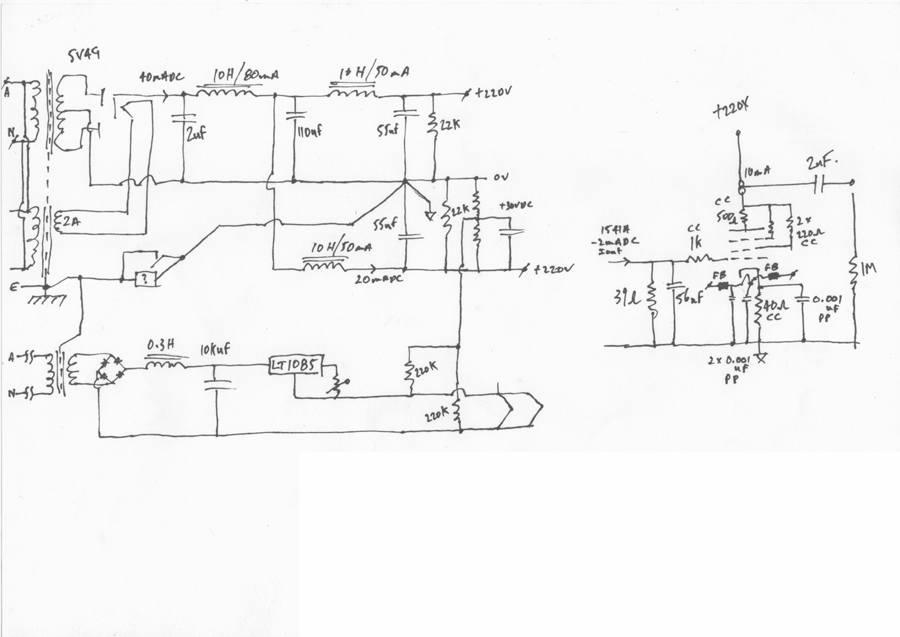 5V4G
A
N
40mADC
10H/80mA
2uf
110uf
55uf
22K
+220V
0V
2A
55uf
22K
+30VDC
10H/50mA
20mADC
+220V
E
?
A
N
0.3H
10Kuf
LT1085
220K
220K
+220V
10mA
2uF.
CC
500
2x
220Ω
CC
1541A
-2mADC
Iout
CC
1k
FB
FB
56nF
CC
0.001
uF
PP
1M
2x0.001
uF
PP